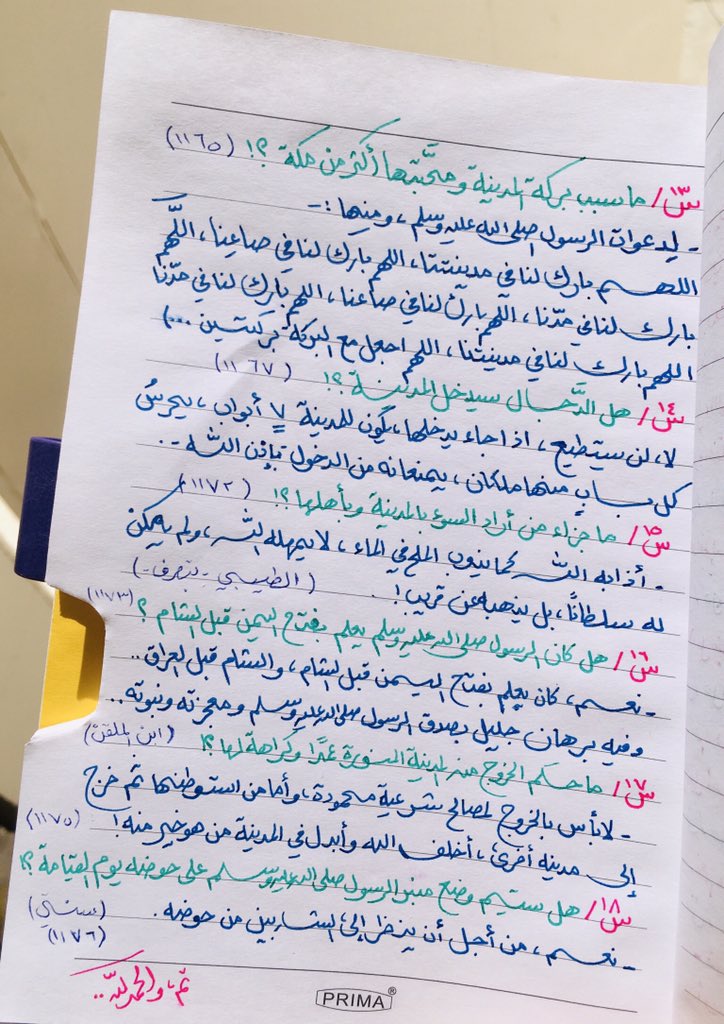 س١٣/ ما سبب بركة المدينة ومحبَّتها أكثر من مكة ؟! (١١٦٥)
- لدعوات الرسول صلى الله عليه وسلم، ومنها :-
اللهم بارك لنا في مدينتنا، اللهم بارك لنا في صاعنا، اللَّهم
بارك لنا في مدّنا، اللهم بارك لنا في صاعنا، اللهم بارك لنا في مدّنا
اللهم بارك لنا في مدينتنا، اللهم اجعل مع البركة بركتين ...)
س١٤/ هل الدَّجال سيدخل المدينة ؟! (١١٦٧)
لا، لن يستطيع، اذا جاء يدخلها، يكون للمدينة ٧ أبواب، يحرسُ
كل باب منها ملكان، يمنعانه من الدخول بإذن الله ..
س١٥/ ما جزاء من أراد السوء بالمدينة وبأهلها ؟! (١١٧٢)
- أذابه الله كما يذوب الملح في الماء، لا يمهله الله، ولم يمكن
له سلطانًا، بل يذهبه عن قريب! . (الطيبي - بتصرف -)
س١٦/ هل كان الرسول صلى الله عليه وسلم يعلم بفتح اليمن قبل الشام ؟ (١١٧٣)
- نعم، كان يعلم بفتح اليمن قبل الشام، والشام قبل العراق ..
وفيه برهان جليل بصدق الرسول صلى الله عليه وسلم ومعجزته ونبوته ..
س١٧/ ما حكم الخروج من المدينة المنورة عمدًا وكراهة لها ؟! (ابن الملقن)
- لا بأس بالخروج لمصالح شرعية محمودة، وأما من استوطنها ثم خرج
إلى مدينة أخرى، أخلف الله وأبدل في المدينة من هو خير منه! (١١٧٥)
س١٨/ هل سيتم وضع منبر الرسول صلى الله عليه وسلم على حوضه يوم القيامة ؟!
- نعم، من أجل أن ينظر إلى الشاربين من حوضه. (سندي)
(١١٧٦)
تم، والحمد لله ..
PRIMA®